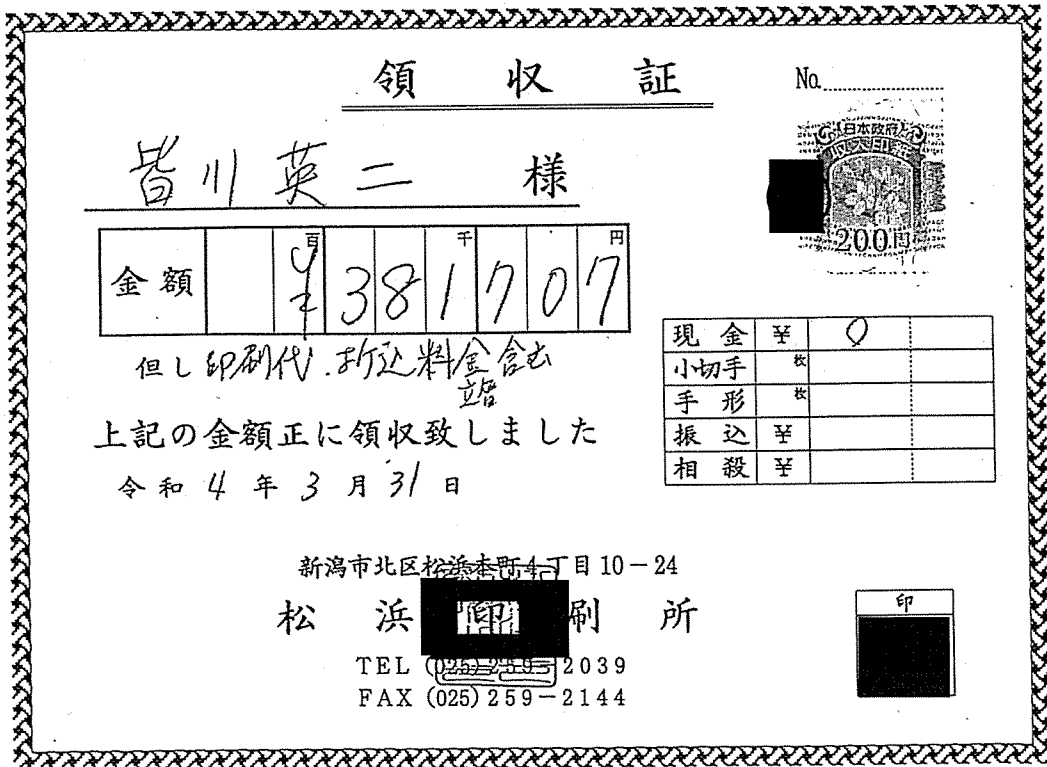 領収証
No.
日本政府
収入印紙
200円
皆川英二 様
金額 百 千 円
¥381707
但し 印刷代.折込料金含む
立替
上記の金額正に領収致しました
令和 4 年 3 月 31 日
現金 ¥ 0
小切手 枚
手形 枚
振込 ¥
相殺 ¥
新潟市北区松浜本町4丁目10-24
松浜印刷所
TEL (025)259-2039
FAX (025)259-2144
印